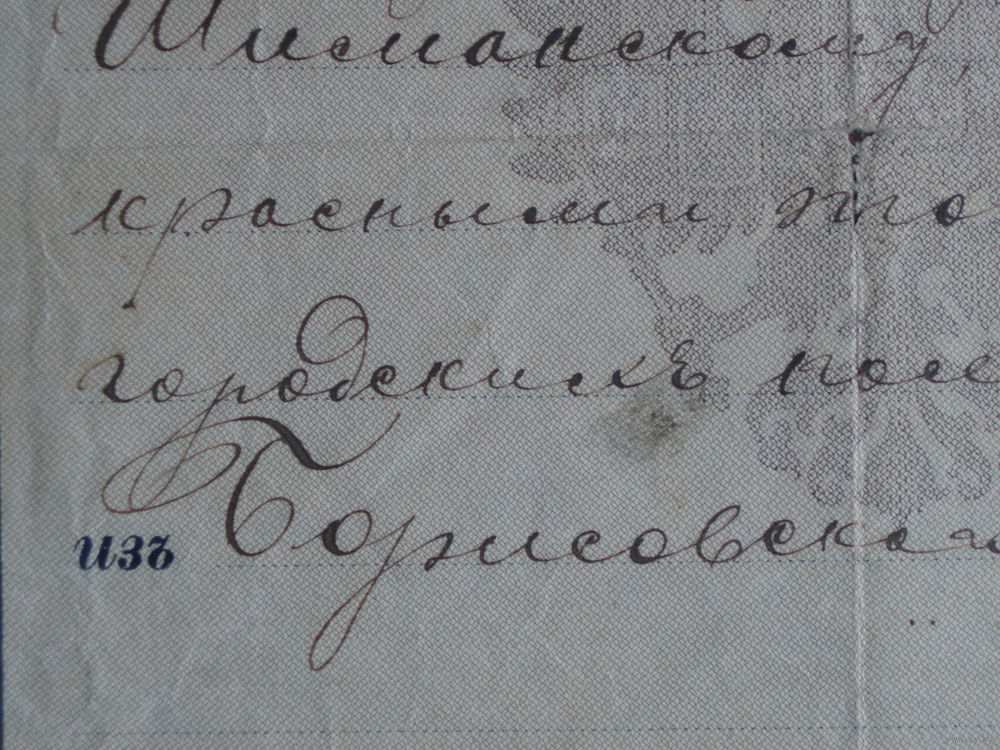 Шиманскому,
красными то
городскихъ пол
изъ Борисовска